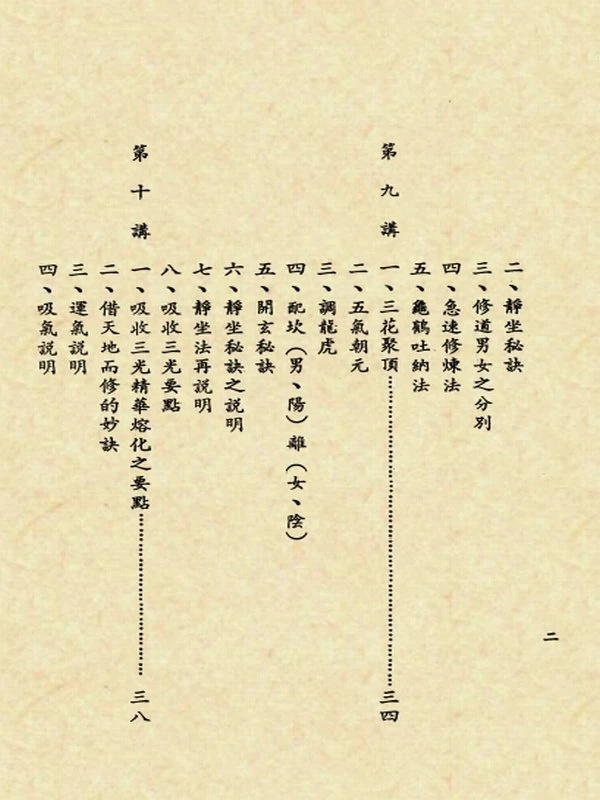 二、靜坐秘訣
三、修道男女之分別
四、急速修煉法
五、龜鶴吐納法
第九講 一、三花聚頂……三四
二、五氣朝元
三、調龍虎
四、配坎(男、陽)離(女、陰)
五、開玄秘訣
六、靜坐秘訣之説明
七、靜坐法再説明
八、吸收三光要點
第十講 一、吸收三光精華熔化之要點……三八
二、借天地而修的妙訣
三、運氣説明
四、吸氣説明
二